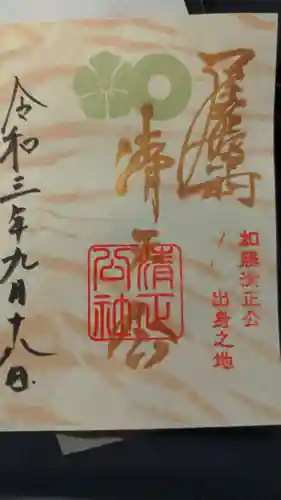 加藤清正公
出身之地
清正公
清正
公神
令和三年九月十八日